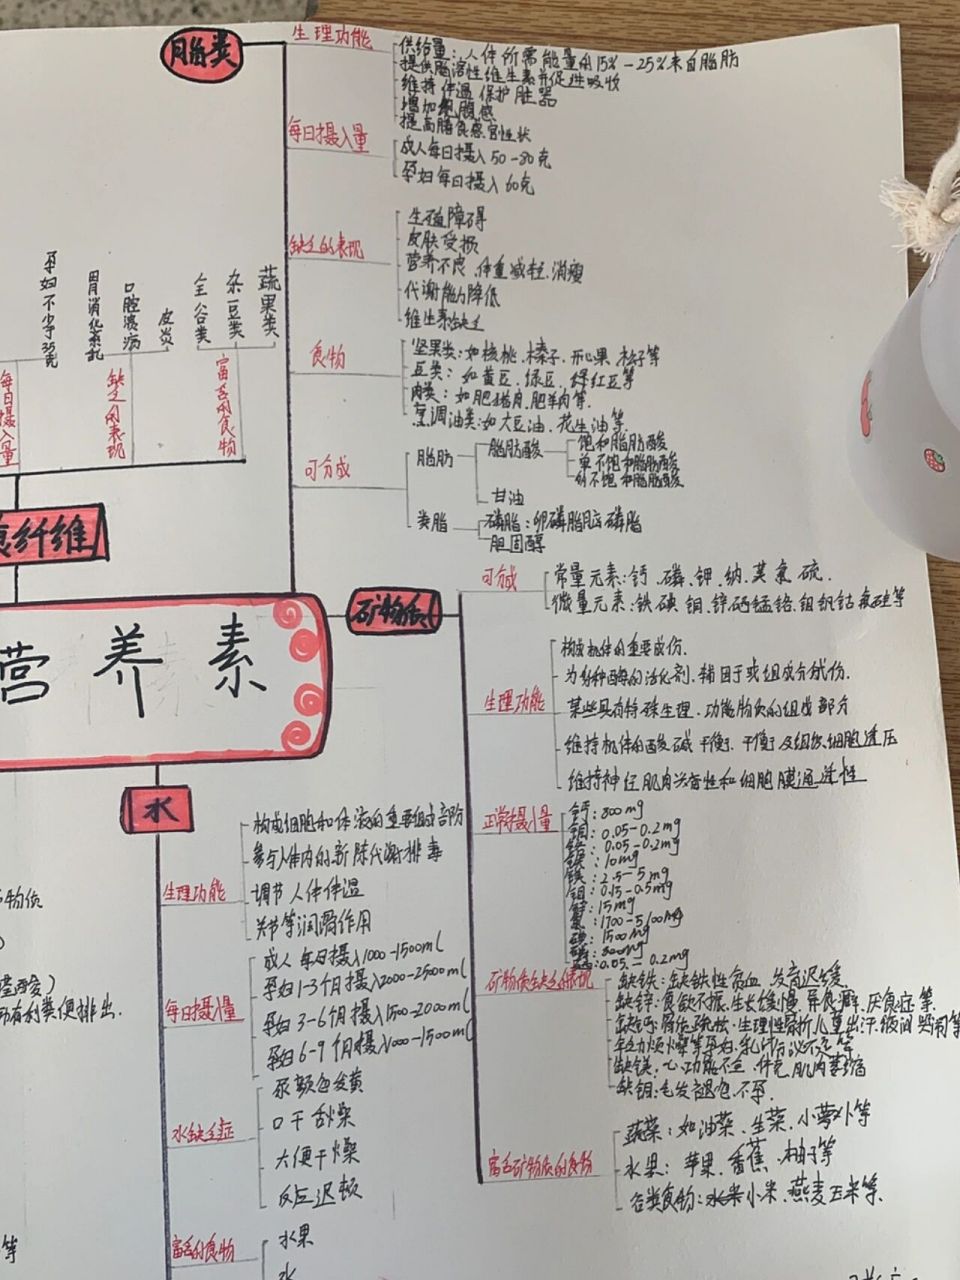 脂类
生理功能
供给量:人体所需能量的15%-25%来自脂肪
提供脂溶性维生素并促进吸收
维持体温 保护脏器
增加饱腹感
提高膳食感官性状
每日摄入量
成人每日摄入50-80克
孕妇每日摄入60克
缺乏的表现
生殖障碍
皮肤受损
营养不良、体重减轻、消瘦
代谢能力降低
维生素缺乏
食物
坚果类:如核桃、榛子、开心果、松子等
豆类:如黄豆、绿豆、红豆等
肉类:如肥猪肉、肥羊肉等.
烹调油类:如大豆油、花生油等
可分成
脂肪
脂肪酸
饱和脂肪酸
单不饱和脂肪酸
不饱和脂肪酸
甘油
类脂
磷脂:卵磷脂脑磷脂
胆固醇
孕妇不少于35克
胃消化紊乱
口腔溃疡
皮炎
全谷类
杂豆类
蔬果类
每日摄入量
缺乏的表现
富含的食物
纤维
营养素
矿物质
可分成
常量元素:钙、磷、钾、纳、镁、氯、硫.
微量元素:铁、碘、铜、锌、硒、锰、铬、钼、钒、钴、硅等
生理功能
构成机体的重要成份.
为多种酶的活化剂、辅因子或组成分成份.
某些具有特殊生理、功能物质的组成部分
维持机体的酸碱平衡、平衡及组织细胞透压
维持神经肌肉兴奋性和细胞膜通透性
正常摄入量
钙:800mg
0.05-0.2mg
0.05-0.2mg
10mg
2.5-5mg
钼:0.15-0.5mg
锌:15mg
氯:1700-5100mg
1500mg
800mg
0.05-0.2mg
矿物质缺乏的表现
缺铁:缺铁性贫血、发育迟缓
缺锌:食欲不振、生长缓慢、异食癖、厌食症等
缺镁:心功能不全、肌肉萎缩
缺铜:毛发褪色、不孕.
富含矿物质的食物
蔬菜:如油菜、生菜、小萝卜等
水果:苹果、香蕉、柚子等
谷类食物:小米、燕麦玉米等.
水
生理功能
构成细胞和体液的重要组成部分
参与人体内的新陈代谢排毒
调节人体体温
关节等润滑作用
每日摄入量
成人每日摄入1000-1500ml
孕妇1-3个月摄入2000-2500ml
孕妇3-6个月摄入1500-2000ml
孕妇6-9个月摄入1000-1500ml
水缺乏症
尿颜色发黄
口干舌燥
大便干燥
反应迟顿
富含的食物
水果
水
物质
粪便排出.
等